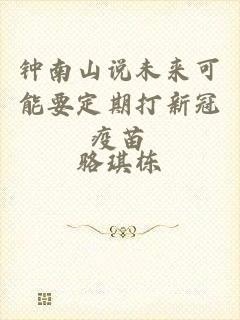 钟南山说未来可
能要定期打新冠
疫苗
骆琪栋